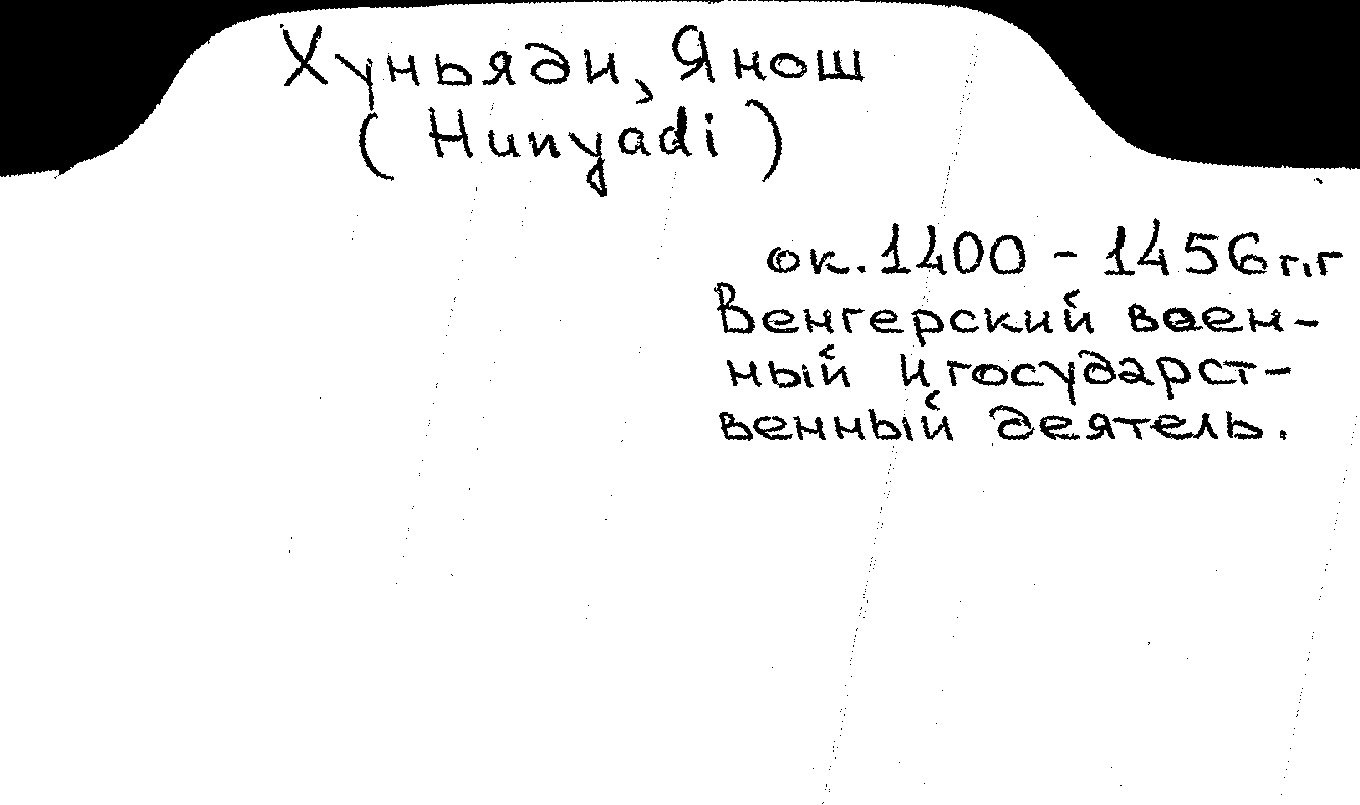 Хуньяди, Янош
(Hunyadi)
ок. 1400 - 1456 г.г
Венгерский воен-
ный и государст-
венный деятель.